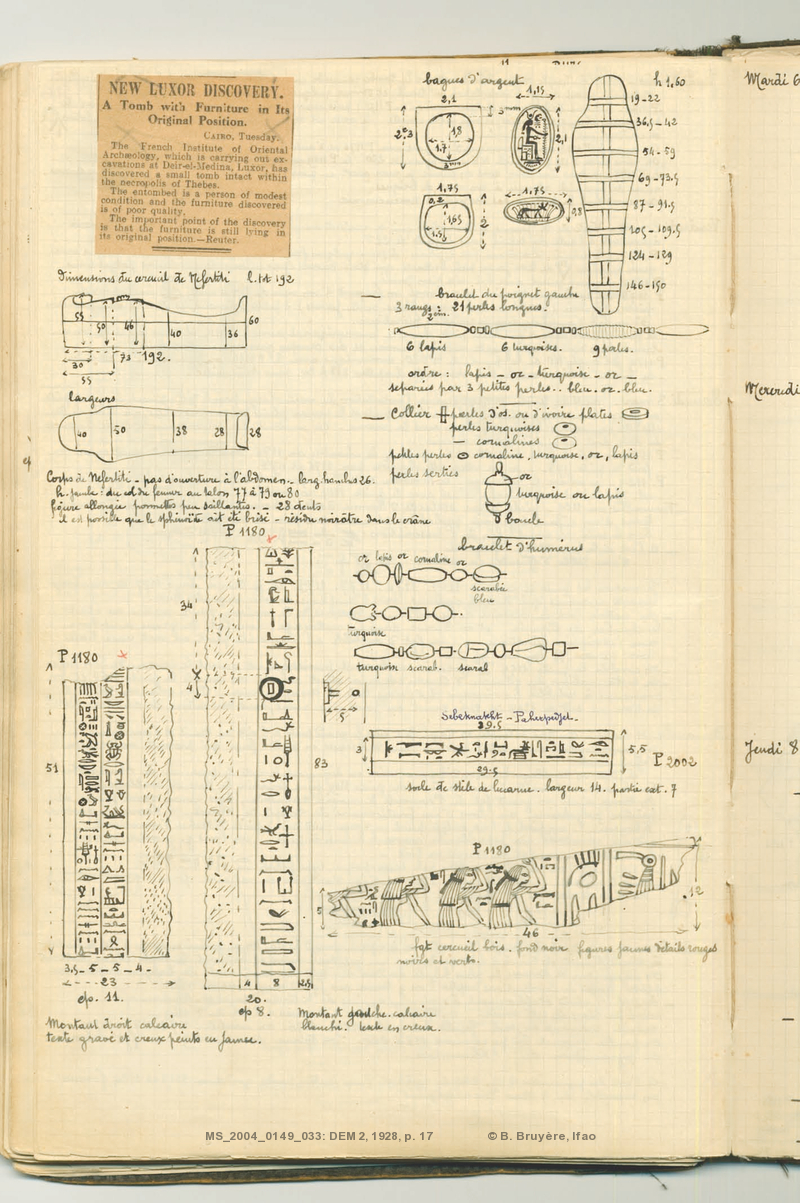 NEW LUXOR DISCOVERY.
A Tomb with Furniture in Its
Original Position.
CAIRO, Tuesday.
The French Institute of Oriental
Archæology, which is carrying out ex-
cavations at Deir-el-Medina, Luxor, has
discovered a small tomb intact within
the necropolis of Thebes.
The entombed is a person of modest
condition and the furniture discovered
is of poor quality.
The important point of the discovery
is that the furniture is still lying in
its original position.—Reuter.
dimensions du cercueil de Nefertiti l. tot 192
55
50
46
40
36
60
30
73
192.
55
largeurs
40
50
38
28
28
Corps de Nefertiti - pas d'ouverture à l'abdomen. - larg. hanches 26.
h. jambe : du col du femur au talon 77 à 79 ou 80
figure allongée pommettes peu saillantes. - 28 dents
il est possible que le sphénoïde ait été brisé - résidu noirâtre dans le crâne
P 1180
34
4
83
4 8 2,5
20.
ep 8.
Montant gauche. calcaire
blanchi. texte en creux.
P 1180
51
3,5 - 5 - 5 - 4 -
23
ep. 11.
Montant droit calcaire
texte gravé et creux peints en jaune.
bagues d'argent
2,1
1,8
1.7
3mm
1,15
2,1
1,75
0,2
1,65
2
1,75
0,8
h 1,60
19-22
36,5-42
54-59
69-73.5
87-91.5
105-109.5
124-129
146-150
bracelet du poignet gauche
3 rangs : 21 perles longues.
6 lapis 6 turquoises. 9 perles.
ordre : lapis - or - turquoise - or -
separées par 3 petites perles.. bleu. or. bleu.
Collier perles d'os. ou d'ivoire plates
perles turquoises
— cornalines
petites perles cornaline, turquoise, or, lapis
perles serties
or
turquoise ou lapis
boucle
bracelet d'humérus
or lapis or cornaline or
scarabée
bleu
turquoise
turquoise scarab. scarab
5
Sebeknakht - Paherpedjet.
29.5
3
5,5
P 2002
29.5
socle de stèle de lucarne. largeur 14. partie ext. 7
P 1180
5
12
46
fgt cercueil bois. fond noir figures jaunes détails rouges
noirs et verts.
Mardi 6
Mercredi
Jeudi 8
MS_2004_0149_033: DEM 2, 1928, p. 17 © B. Bruyère, Ifao